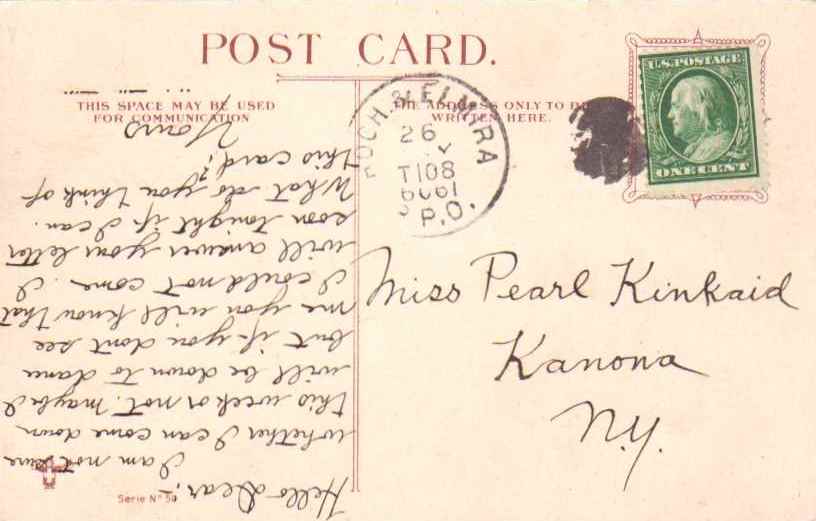 POST CARD.
THIS SPACE MAY BE USED
FOR COMMUNICATION
THE ADDRESS ONLY TO BE
WRITTEN HERE.
U.S. POSTAGE
ONE CENT
ROCH. & ELMIRA
26
T108
R.P.O.
Miss Pearl Kinkaid
Kanona
N.Y.
Hello Dear,-
I am not sure
whether I can come down
this week or not. maybe I
will be down to dance
but if you dont see
me you will know that
I could not come. I
will answer your letter
soon tonight if I can.
What do you think of
this card?
Yours
Serie No 50